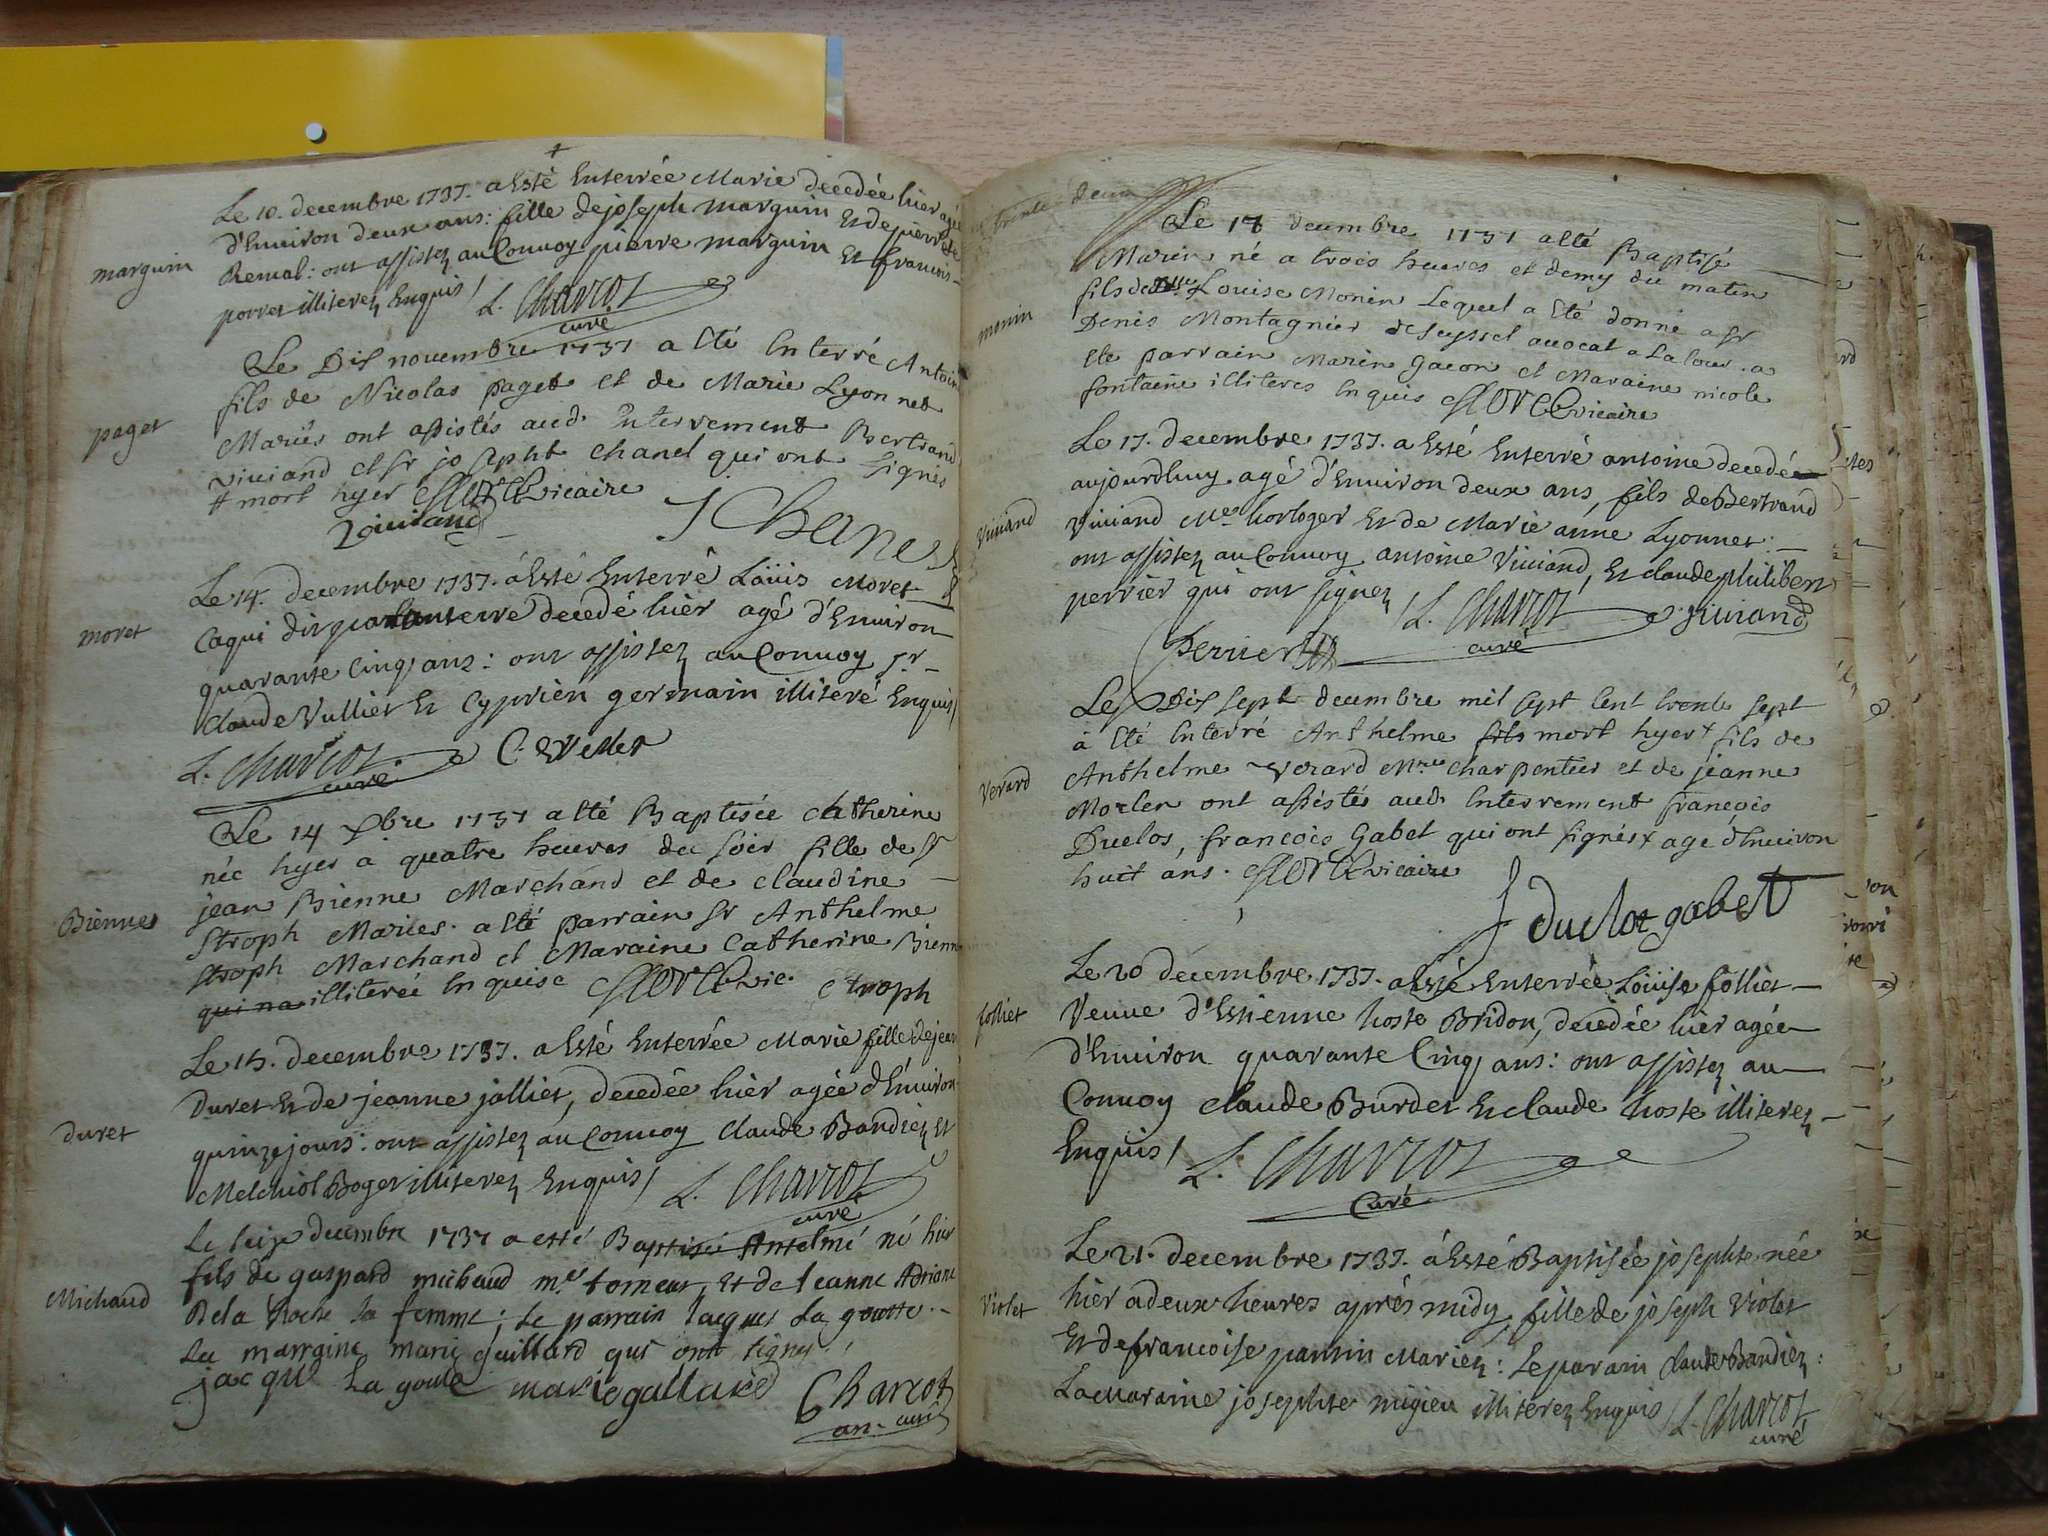 Le 10. decembre 1737. a Esté Enterrée Marie decedée hier agée
d'Environ deux ans: fille de joseph marguin Et de pierrete
marguin
Remal: ont assistez au Convoy pierre marguin Et francois
porret illiterez Enquis / L. Charcot
curé
Le Dis novembre 1737 a Eté Enterré Antoine
fils de Nicolas paget et de Marie Lyonnet
paget
Mariés ont assistés aud. Enterrement Bertrand
viviand et sr joseph chanel qui ont signés
# mort hyer vicaire
Viviand J Chanel
Le 14. decembre 1737. a Esté Enterré Loüis Moret
moret
decedé hier agé d'Environ
quarante Cinq ans: ont assistez au Convoy sr
Claude Vullier Et Cyprien germain illiteré Enquis /
L. Charcot
curé
Le 14 xbre 1737 a Eté Baptisée Catherine
née hyer à quatre heures du soir fille de sr
jean Bienne Marchand et de claudine
Biennes
Stroph Mariés. a Eté parrain sr Anthelme
Stroph Marchand et Maraine Catherine Bienne
qui na illiterée Enquise vic. Stroph
Le 15. decembre 1737. a Esté Enterrée Marie fille de jean
Duret Et de jeanne jallier, decedée hier agée d'Environ
duret
quinze jours: ont assistez au Convoy Claude Bandiez Et
Melchiol Boger illiterez Enquis / L. Charcot
curé
Le seize decembre 1737 a esté Baptisé Anselmé né hier
fils de gaspard michaud me torneur, Et de Jeanne Adriane
Michaud
De la Roche sa femme; Le parrain Jacques La goutte.
La marraine marie guillard qui ont signés.
jacque La goute marie gallard Charcot
an. curé
trente deux
Le 17 decembre 1737 a Eté Baptisé
Marin né a trois heures et demy du matin
fils de Louise Monin Lequel a Eté donné a sr
monin
Denis Montagnier de seyssel avocat a La Cour. a
Ete parrain Marin gacon et Maraine nicole
fontaine illiteres Enquis vicaire
Le 17. decembre 1737. a Esté Enterré antoine decedé
aujourdhuy agé d'Environ deux ans, fils de Bertrand
Viviand
Viviand Me horloger Et de Marie anne Lyonnet:
ont assistez au Convoy antoine Viviand, Et claude philibert
perrier qui ont signez / L. Charcot Viviand
curé
Perrier
Le Dis sept decembre mil sept Cent trente sept
à Eté Enterré Anthelme fils mort hyer + fils de
Verard
Anthelme verard Mre charpentier et de jeanne
Morler ont assistés aud. Enterrement francois
Duclos, francois Gabet qui ont signés + agé d'Environ
huit ans. vicaire
f duclos gabet
Le 20 decembre 1737. a Esté Enterrée Loüise folliet
folliet
Veuve d'Estienne hoste Bridon, decedée hier agée
d'Environ quarante Cinq ans: ont assistez au
Convoy claude Burdet Et claude hoste illiterez
Enquis / L. Charcot
Curé
Le 21. decembre 1737. á Esté Baptisée josephte née
Violet
hier a deux heures aprés midy, fille de joseph Violet
Et de francoise pannin Mariez: Le parain claude Bandiez:
La Maraine josephte migieu illiterez Enquis / L. Charcot
curé